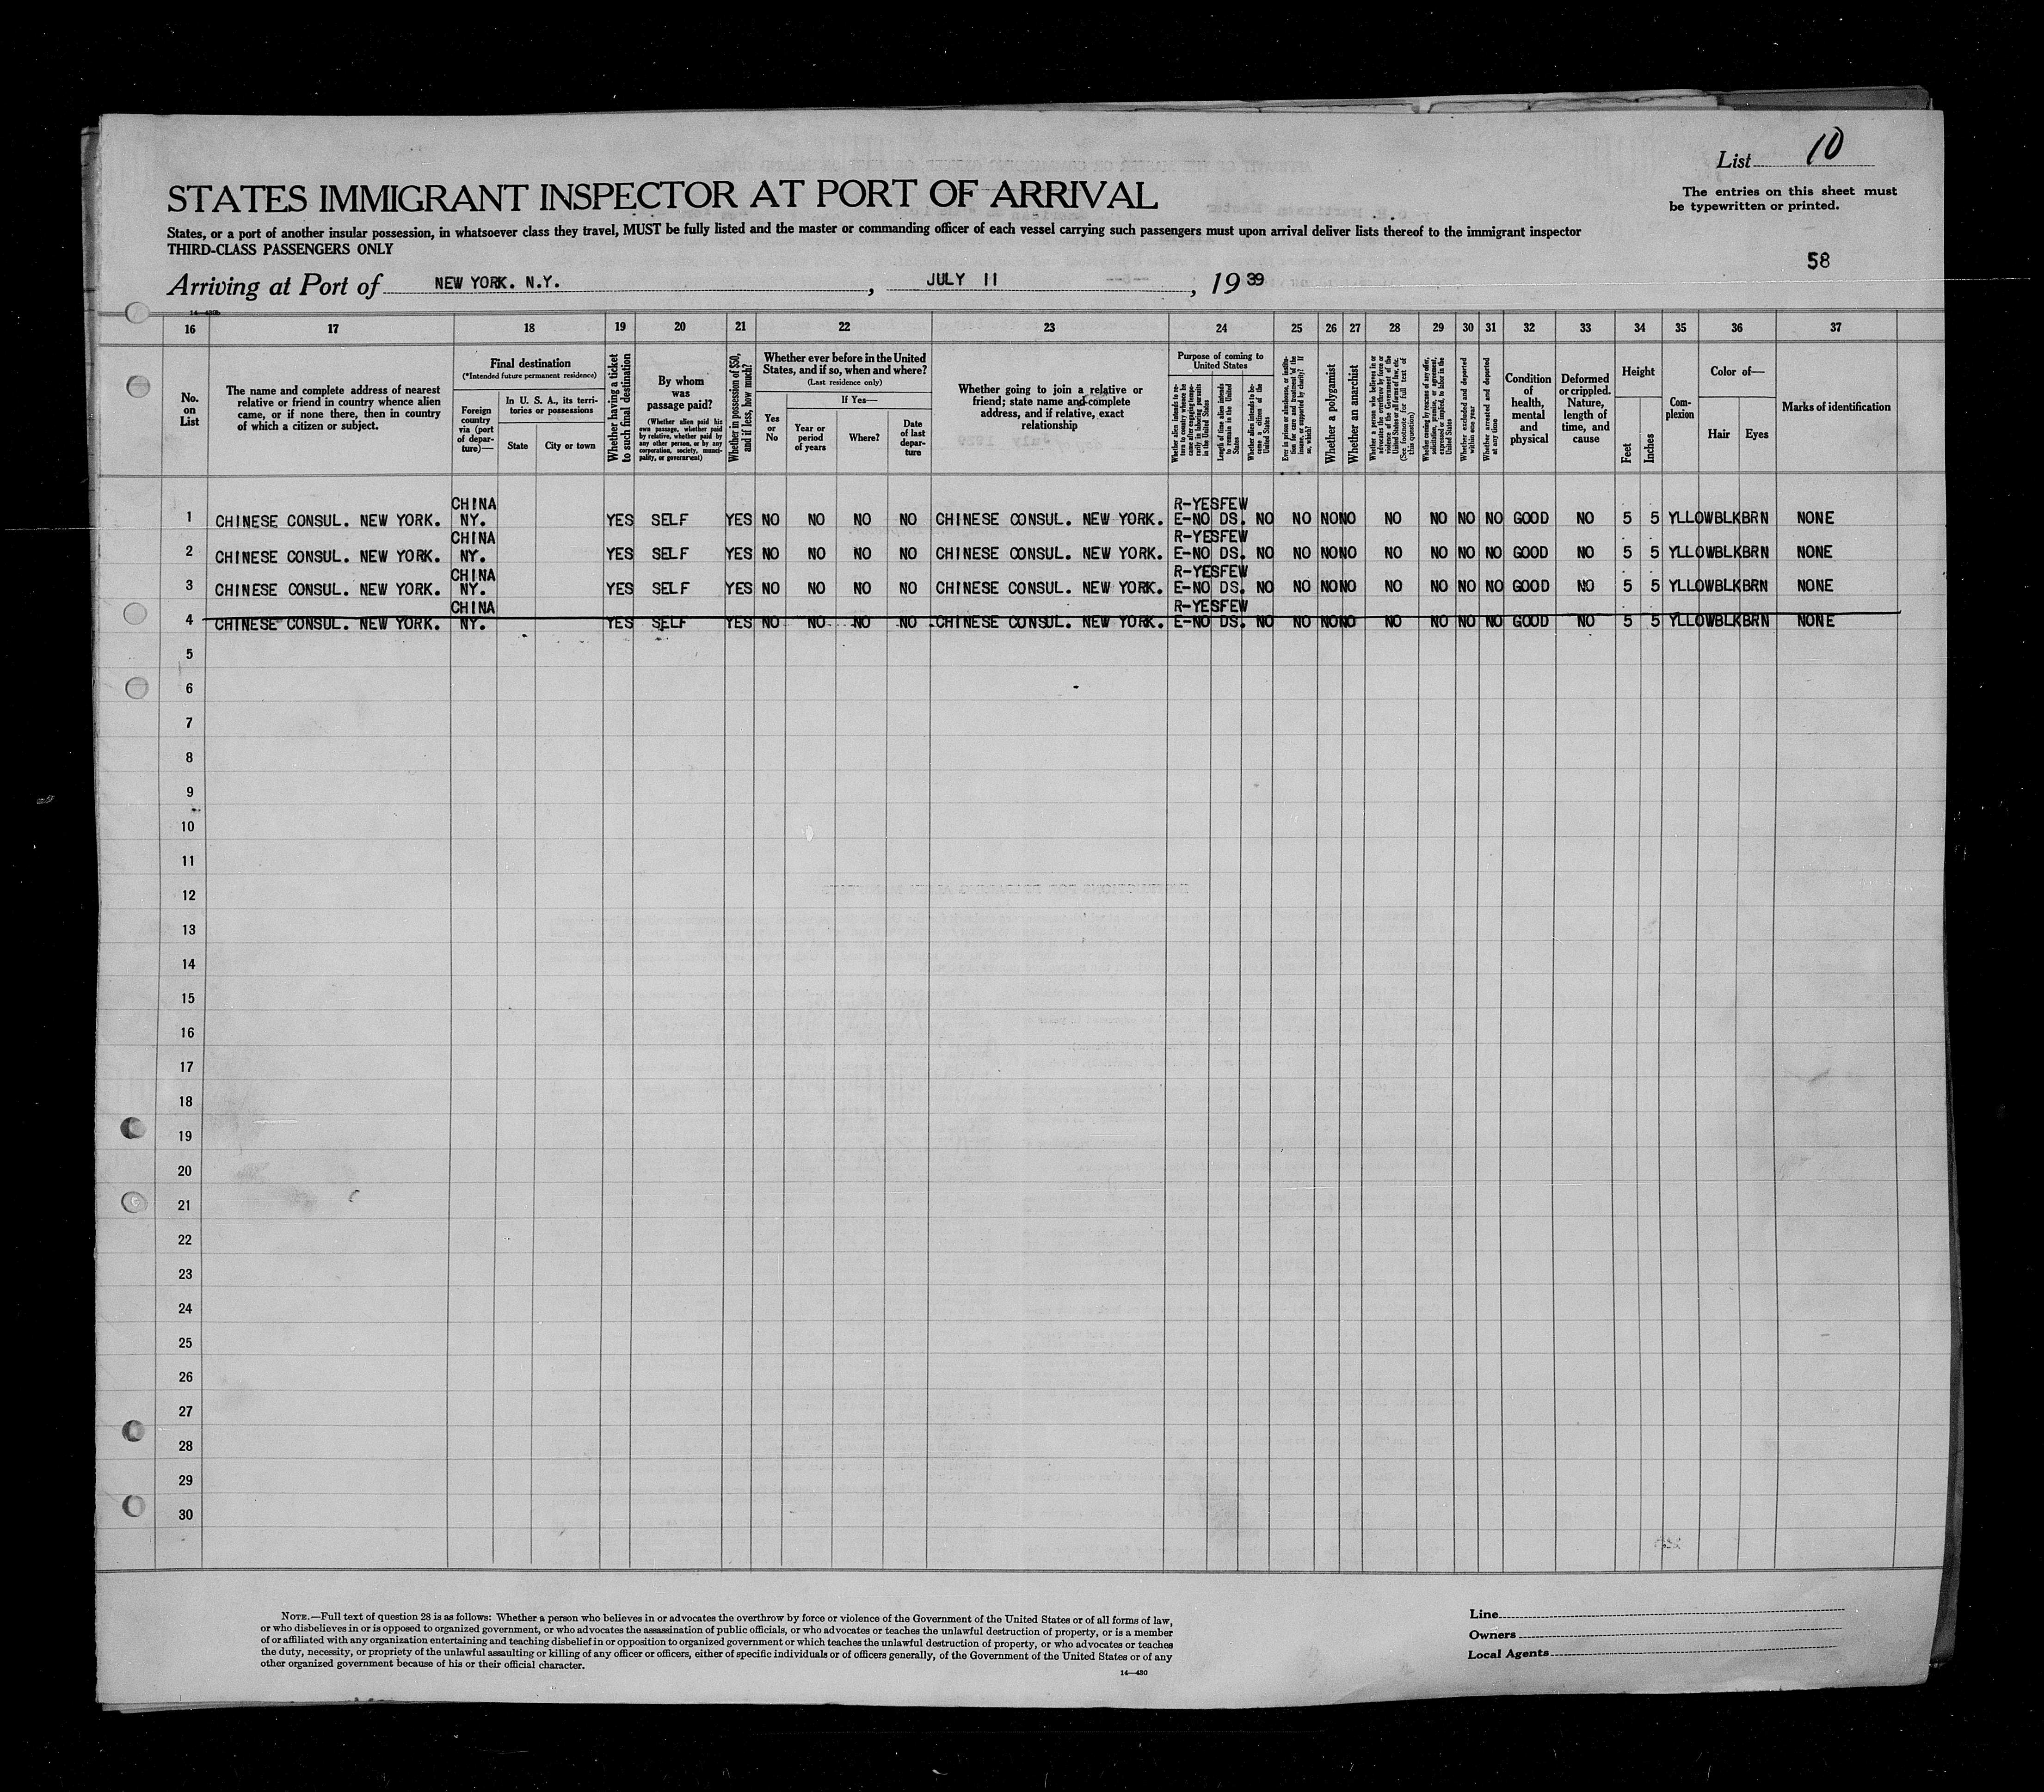 List 10
The entries on this sheet must
be typewritten or printed.
STATES IMMIGRANT INSPECTOR AT PORT OF ARRIVAL
States, or a port of another insular possession, in whatsoever class they travel, MUST be fully listed and the master or commanding officer of each vessel carrying such passengers must upon arrival deliver lists thereof to the immigrant inspector
THIRD-CLASS PASSENGERS ONLY
58
Arriving at Port of NEW YORK. N.Y. , JULY 11 , 19 39
16 17 18 19 20 21 22 23 24 25 26 27 28 29 30 31 32 33 34 35 36 37
No.
on
List
The name and complete address of nearest
relative or friend in country whence alien
came, or if none there, then in country
of which a citizen or subject.
Final destination
(*Intended future permanent residence)
Foreign
country
via (port
of depar-
ture)—
In U. S. A., its terri-
tories or possessions
State
City or town
Whether having a ticket
to such final destination
By whom
was
passage paid?
(Whether alien paid his
own passage, whether paid
by relative, whether paid by
any other person, or by any
corporation, society, munici-
pality, or government)
Whether in possession of $50,
and if less, how much?
Whether ever before in the United
States, and if so, when and where?
(Last residence only)
Yes
or
No
If Yes—
Year or
period
of years
Where?
Date
of last
depar-
ture
Whether going to join a relative or
friend; state name and complete
address, and if relative, exact
relationship
Purpose of coming to
United States
Length of time alien intends
to remain in the United
States
Whether alien intends to be-
come a citizen of the
United States
Whether a polygamist
Whether an anarchist
Whether excluded and deported
within one year
Whether arrested and deported
at any time
Condition
of
health,
mental
and
physical
Deformed
or crippled.
Nature,
length of
time, and
cause
Height
Feet
Inches
Com-
plexion
Color of—
Hair
Eyes
Marks of identification
CHINA R-YESFEW
1 CHINESE CONSUL. NEW YORK. NY. YES SELF YES NO NO NO NO CHINESE CONSUL. NEW YORK. E-NO DS. NO NO NONO NO NO NO NO GOOD NO 5 5 YLLOWBLKBRN NONE
CHINA R-YESFEW
2 CHINESE CONSUL. NEW YORK. NY. YES SELF YES NO NO NO NO CHINESE CONSUL. NEW YORK. E-NO DS. NO NO NONO NO NO NO NO GOOD NO 5 5 YLLOWBLKBRN NONE
CHINA R-YESFEW
3 CHINESE CONSUL. NEW YORK. NY. YES SELF YES NO NO NO NO CHINESE CONSUL. NEW YORK. E-NO DS. NO NO NONO NO NO NO NO GOOD NO 5 5 YLLOWBLKBRN NONE
CHINA R-YESFEW
4 CHINESE CONSUL. NEW YORK. NY. YES SELF YES NO NO NO NO CHINESE CONSUL. NEW YORK. E-NO DS. NO NO NONO NO NO NO NO GOOD NO 5 5 YLLOWBLKBRN NONE
5
6
7
8
9
10
11
12
13
14
15
16
17
18
19
20
21
22
23
24
25
26
27
28
29
30
NOTE.—Full text of question 28 is as follows: Whether a person who believes in or advocates the overthrow by force or violence of the Government of the United States or of all forms of law,
or who disbelieves in or is opposed to organized government, or who advocates the assassination of public officials, or who advocates or teaches the unlawful destruction of property, or is a member
of or affiliated with any organization entertaining and teaching disbelief in or opposition to organized government or which teaches the unlawful destruction of property, or who advocates or teaches
the duty, necessity, or propriety of the unlawful assaulting or killing of any officer or officers, either of specific individuals or of officers generally, of the Government of the United States or of any
other organized government because of his or their official character.
14—430
Line
Owners
Local Agents